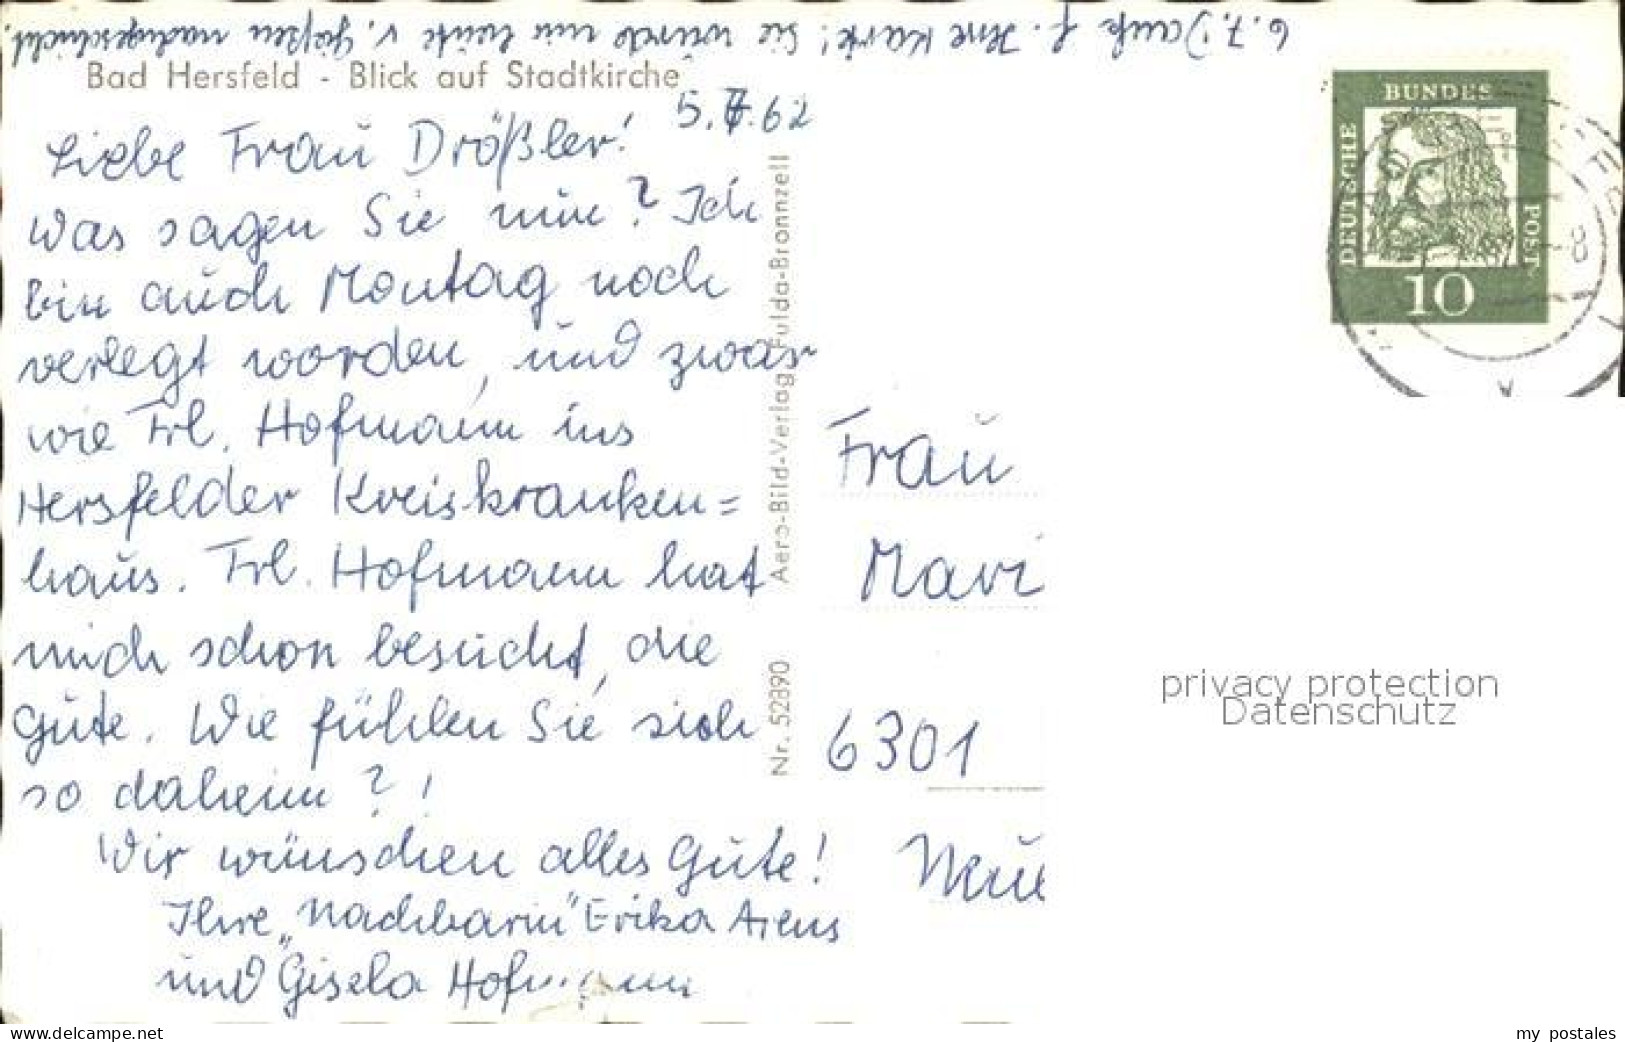 6.7. Dank f. Ihre Karte! Sie wurde mir heute v. Gießen nachgeschickt.
Bad Hersfeld - Blick auf Stadtkirche
5.7.62
Liebe Frau Drößler!
Was sagen Sie nun? Ich
bin auch Montag noch
verlegt worden, und zwar
wie Frl. Hofmann ins
Hersfelder Kreiskranken=
haus. Frl. Hofmann hat
mich schon besucht, die
Gute. Wie fühlen Sie sich
so daheim?!
Wir wünschen alles Gute!
Ihre „Nachbarin" Erika Arens
und Gisela Hofmann
Nr. 52890 Aero-Bild-Verlag Fulda-Bronnzell
DEUTSCHE
BUNDES
POST
10
-8
Frau
Mari
6301
Neue
privacy protection
Datenschutz
www.delcampe.net
my postales